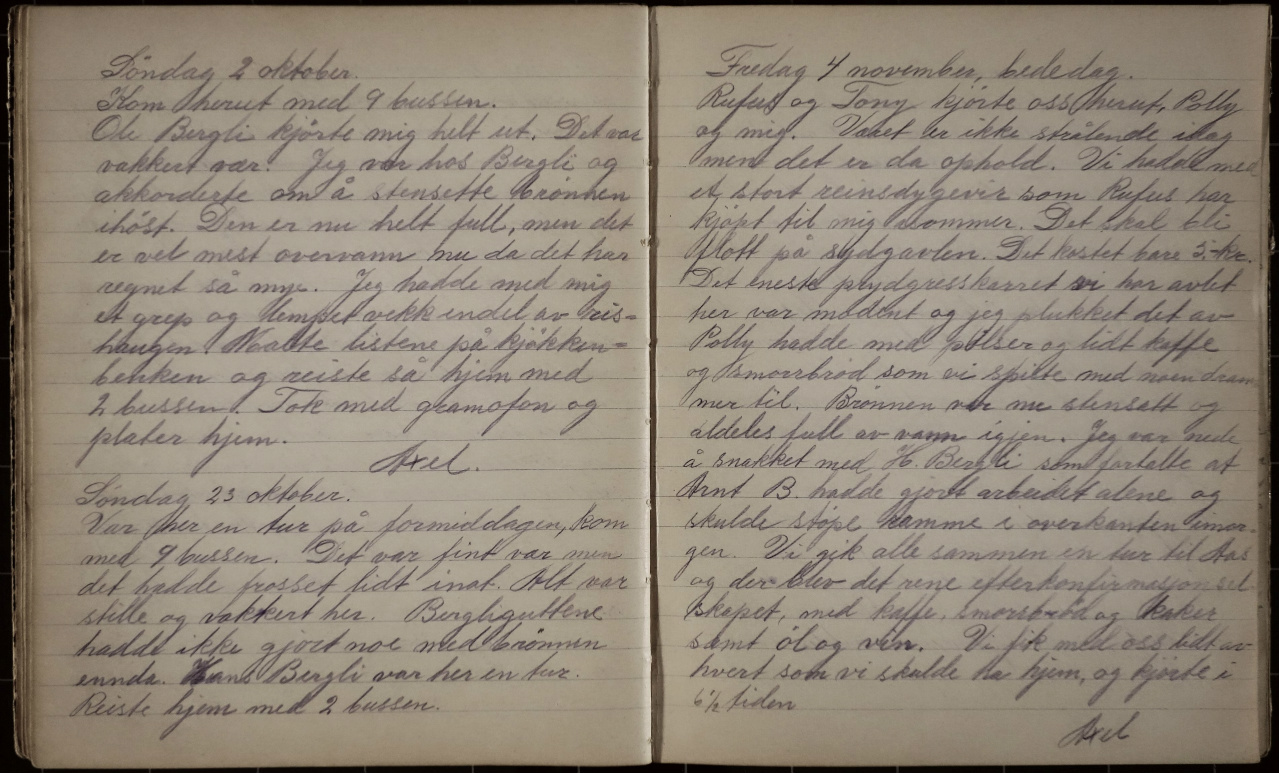 Söndag 2 oktober.
Kom herut med 9 bussen.
Ole Bergli kjörte mig helt ut. Det var
vakkert vær. Jeg var hos Bergli og
akkorderte om å stensette brönnen
ihöst. Den er nu helt full, men det
er vel mest overvann nu da det har
regnet så mye. Jeg hadde med mig
et grep og lempet vekk endel av ris=
haugen. Malte listene på kjökken=
benken og reiste så hjem med
2 bussen. Tok med gramofon og
plater hjem.
Axel.
Söndag 23 oktober.
Var her en tur på formiddagen, kom
med 9 bussen. Det var fint vær men
det hadde frosset lidt inat. Alt var
stille og vakkert her. Bergliguttene
hadde ikke gjort noe med brönnen
ennda. Hans Bergli var her en tur.
Reiste hjem med 2 bussen.
Fredag 4 november, bededag.
Rufus og Tony kjörte oss herut, Polly
og mig. Været er ikke strålende idag
men det er da ophold. Vi hadde med
et stort reinsdyrgevir som Rufus har
kjöpt til mig isommer. Det skal bli
flott på sydgavlen. Det kostet bare 5-kr.
Det eneste prydgresskarret vi har avlet
her var modent og jeg plukket det av
Polly hadde med pölser og lidt kaffe
og smörrbröd som vi spiste med noen dram
mer til. Brönnen var nu stensatt og
aldeles full av vann igjen. Jeg var nede
å snakket med H. Bergli som fortalte at
Arnt B hadde gjort arbeidet alene og
skulde stöpe ramme i overkanten imor-
gen. Vi gik alle sammen en tur til Aas
og der blev det rene efterkonfirmasjonsel
skapet, med kaffe, smörrbröd og kaker
samt öl og vin. Vi fik med oss lidt av
hvert som vi skulde ha hjem, og kjörte i
6½ tiden
Axel